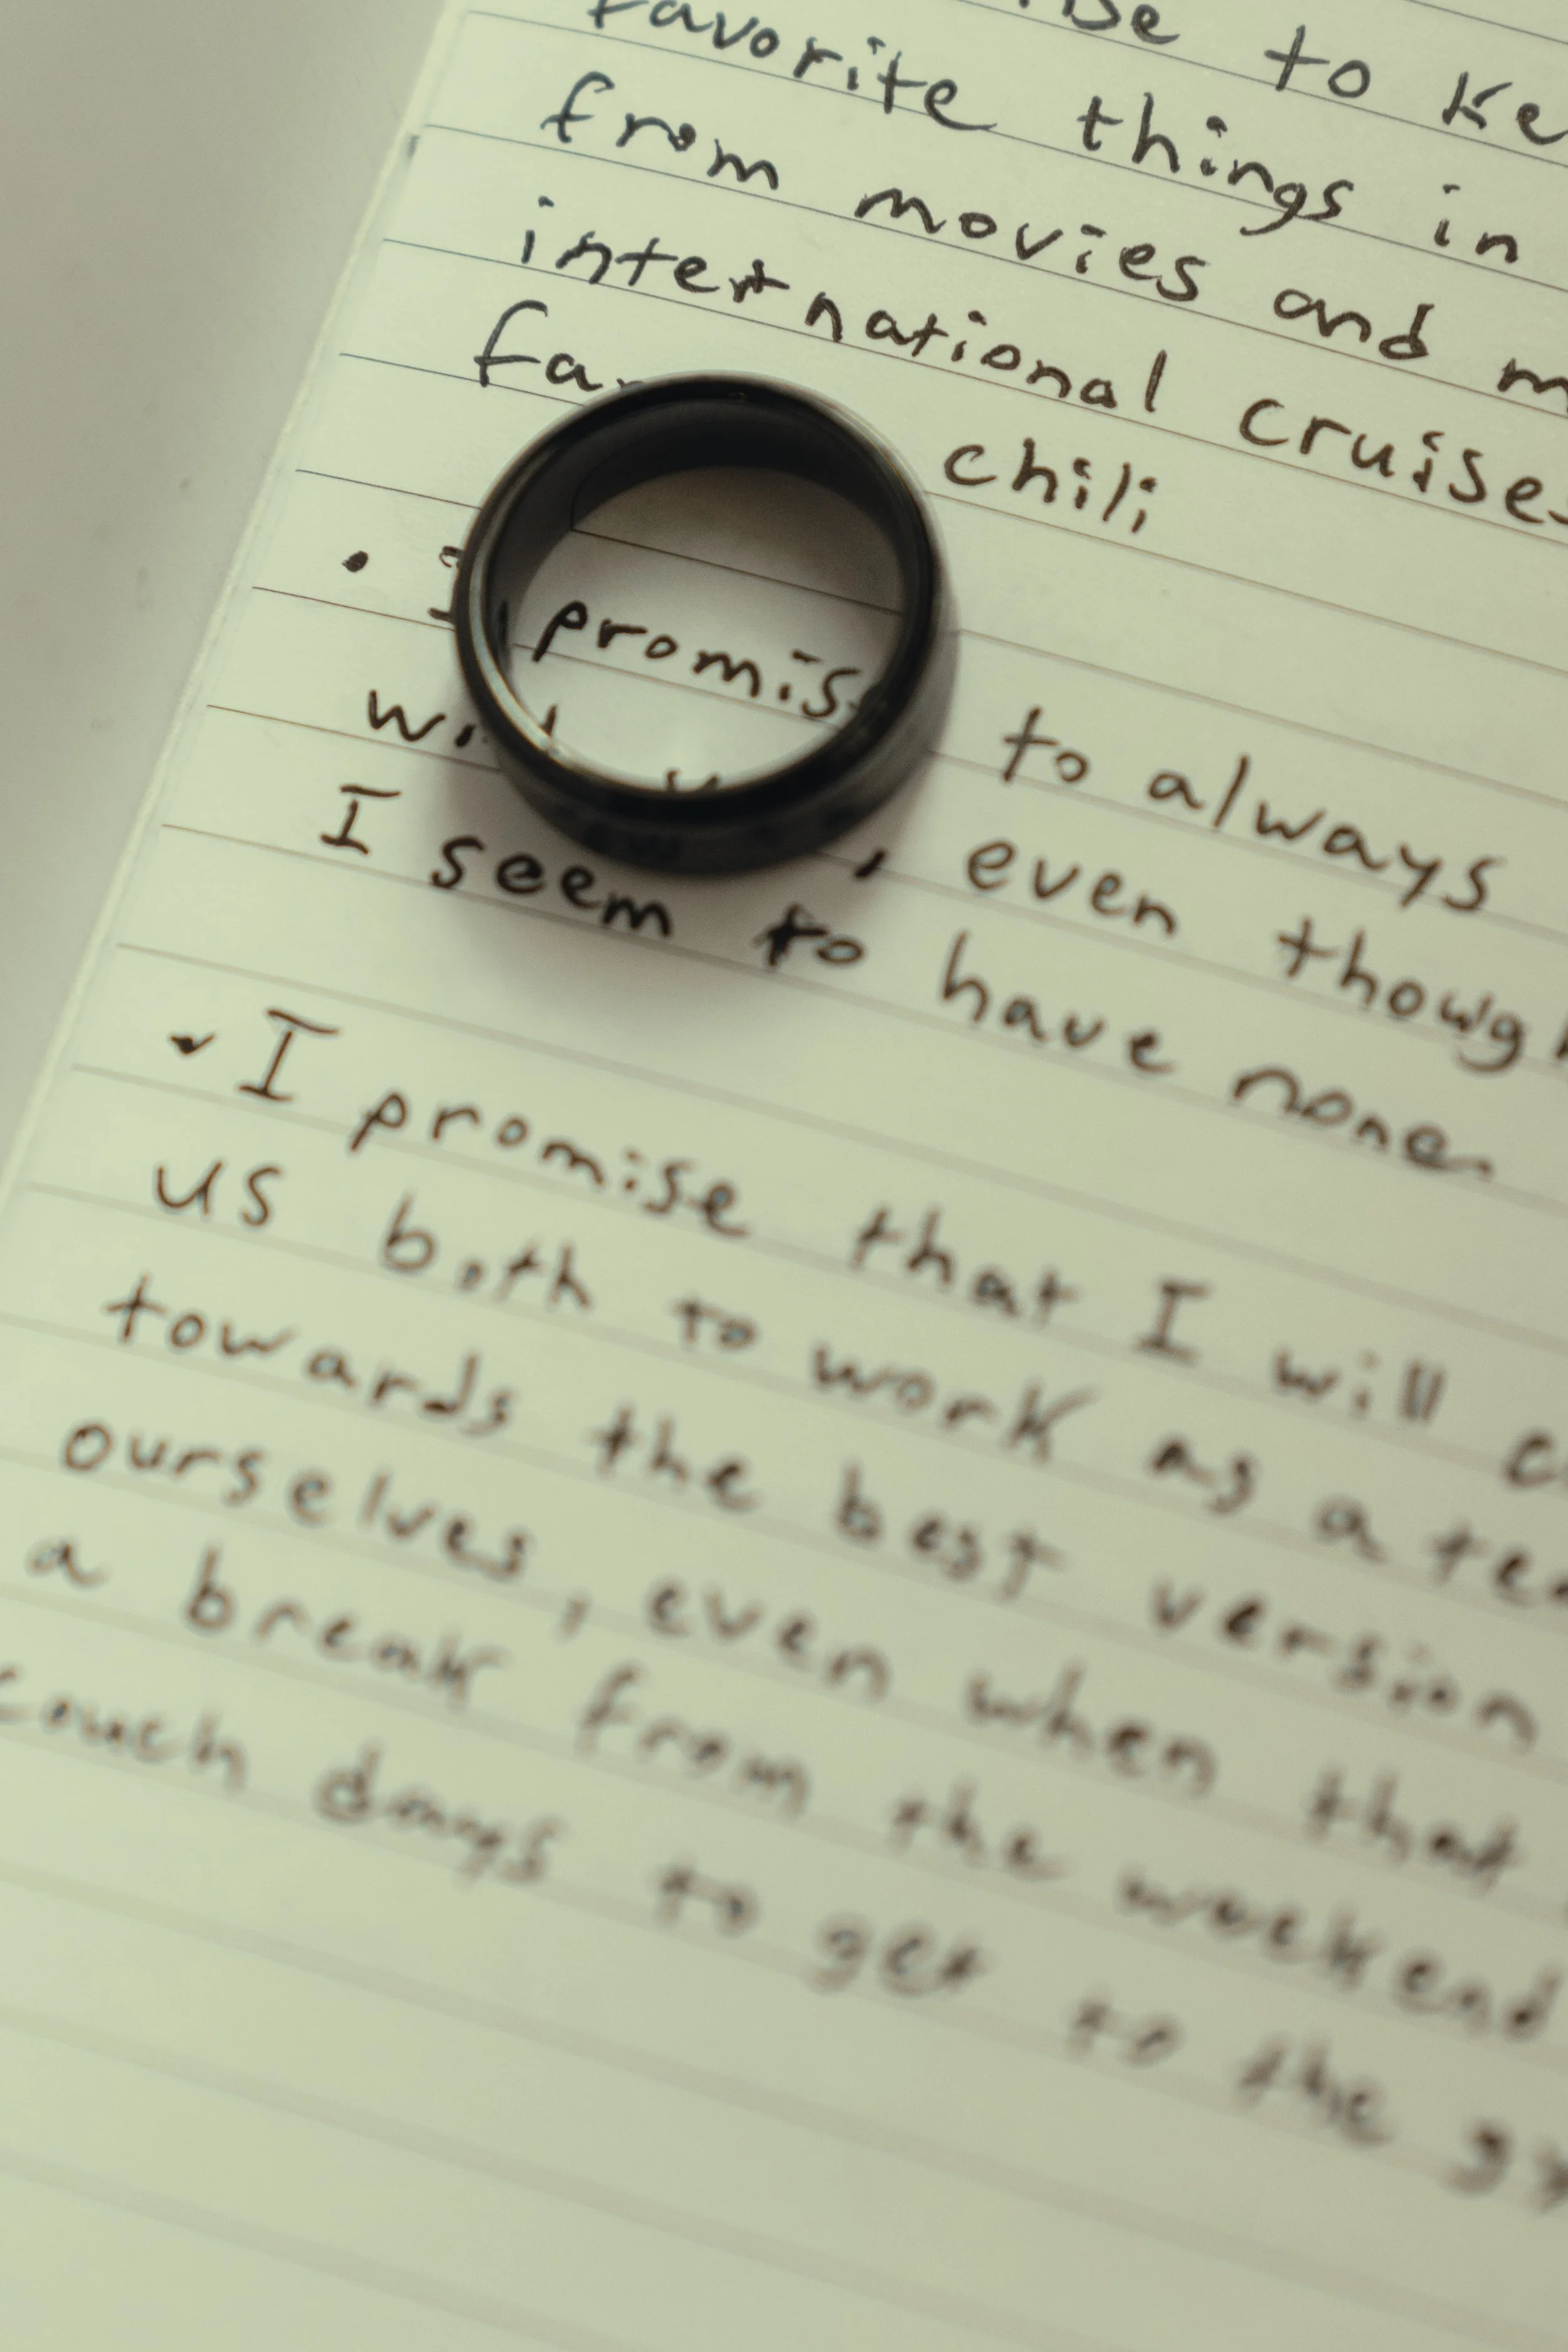 to
favorite things in
from movies and
international cruise
chili
• I promise to always
, even though
I seem to have none.
• I promise that I will
us both to work as a
towards the best version
ourselves, even when that
a break from the weekend
couch days to get to the